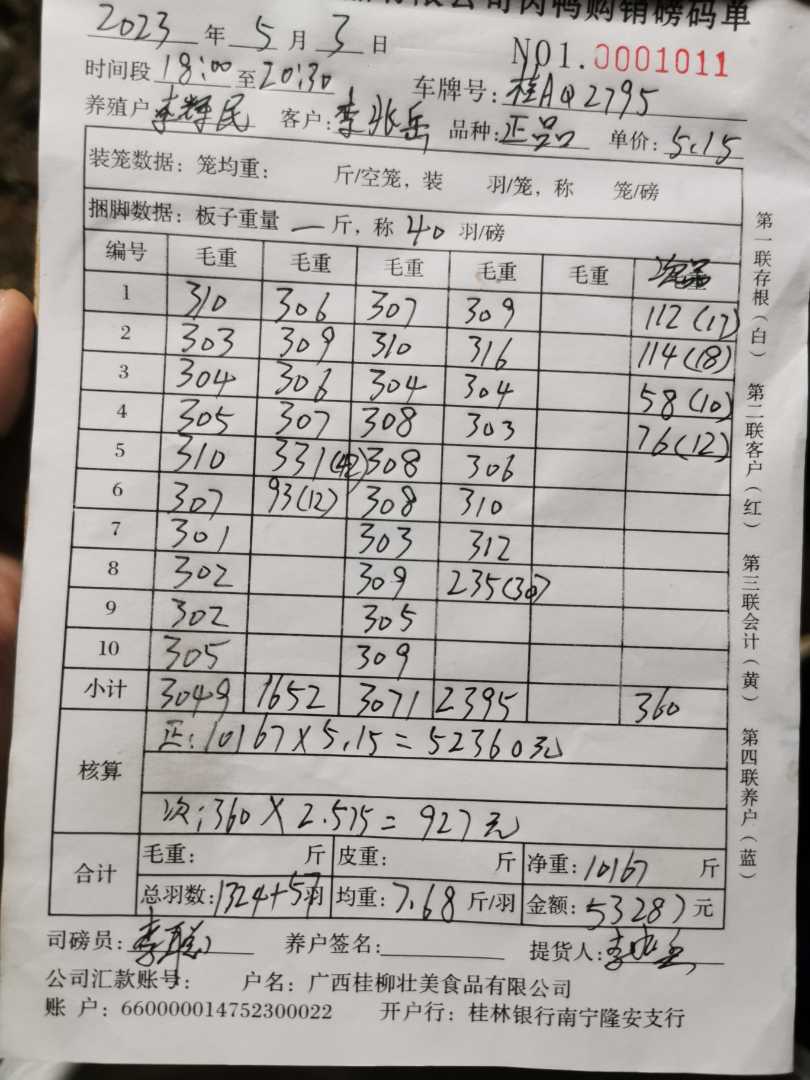 限公司肉鸭购销磅码单
2023 年 5 月 3 日 NO1.0001011
时间段 18:00 至 20:30 车牌号: 桂AQ2795
养殖户 李辉民 客户: 李兆岳 品种: 正品 单价: 5.15
装笼数据: 笼均重: 斤/空笼, 装 羽/笼, 称 笼/磅
捆脚数据: 板子重量 一 斤, 称 40 羽/磅
编号 毛重 毛重 毛重 毛重 毛重 次品
1 310 306 307 309 112(17)
2 303 309 310 316 114(18)
3 304 306 304 304 58(10)
4 305 307 308 303 76(12)
5 310 331(42) 308 306
6 307 93(12) 308 310
7 301 303 312
8 302 309 235(30)
9 302 305
10 305 309
小计 3049 1652 3071 2395 360
核算 正:10167×5.15=52360元
次:360×2.575=927元
合计 毛重: 斤 皮重: 斤 净重:10167 斤
总羽数:1324+57羽 均重:7.68 斤/羽 金额:53287元
司磅员: 李聪 养户签名: 提货人:
公司汇款账号: 户名: 广西桂柳壮美食品有限公司
账 户: 660000014752300022 开户行: 桂林银行南宁隆安支行
第一联存根(白) 第二联客户(红) 第三联会计(黄) 第四联养户(蓝)